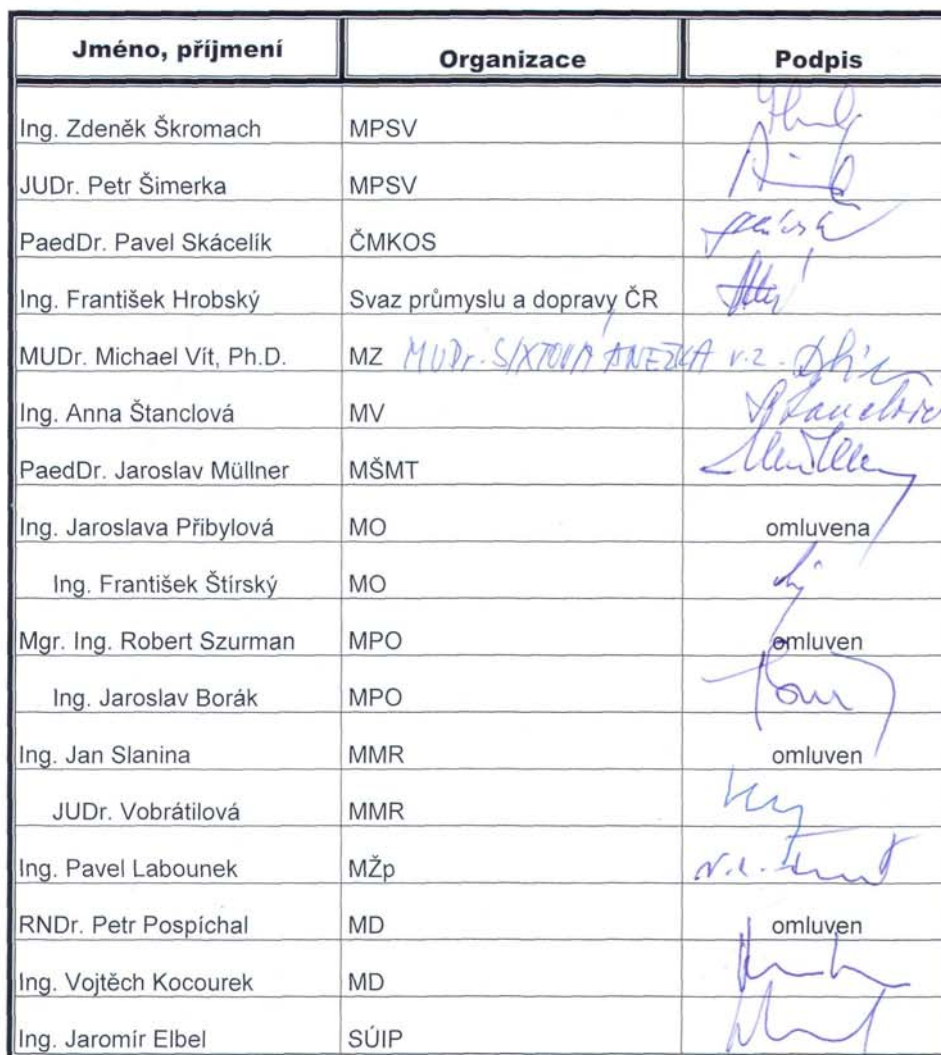 Jméno, příjmení Organizace Podpis
Ing. Zdeněk Škromach MPSV
JUDr. Petr Šimerka MPSV
PaedDr. Pavel Skácelík ČMKOS
Ing. František Hrobský Svaz průmyslu a dopravy ČR
MUDr. Michael Vít, Ph.D. MZ MUDr. SIXTOVÁ ANEŽKA v.z.
Ing. Anna Štanclová MV
PaedDr. Jaroslav Müllner MŠMT
Ing. Jaroslava Přibylová MO omluvena
Ing. František Štírský MO
Mgr. Ing. Robert Szurman MPO omluven
Ing. Jaroslav Borák MPO
Ing. Jan Slanina MMR omluven
JUDr. Vobrátilová MMR
Ing. Pavel Labounek MŽp
RNDr. Petr Pospíchal MD omluven
Ing. Vojtěch Kocourek MD
Ing. Jaromír Elbel SÚIP